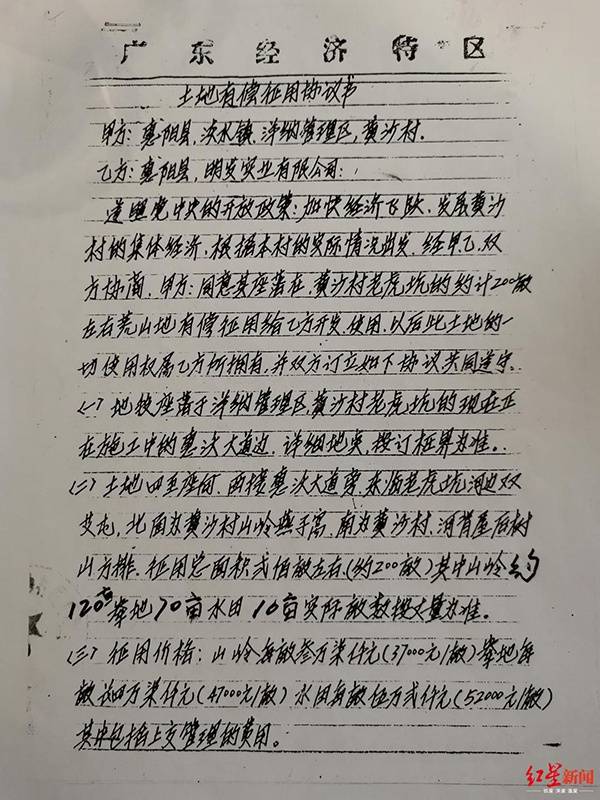 广东经济特区
土地有偿征用协议书
甲方：惠阳县，淡水镇，洋纳管理区，黄沙村．
乙方：惠阳县，明发实业有限公司：
遵照党中央的开放政策：加快经济飞跃．发展黄沙
村的集体经济．根据本村的实际情况出发．经甲乙．双
方协商．甲方：同意其座落在．黄沙村老虎坑的约计200亩
左右荒山地有偿征用给乙方开发．使用．以后此土地的一
切使用权属乙方所拥有．并双方订立如下协议共同遵守。
(一)地段座落于洋纳管理区，黄沙村，老虎坑的现在正
在施工中的惠淡大道边．详细地类，按订桩界为准。
(二)土地四至座向．西接惠淡大道旁．东临老虎坑河边双
北面为黄沙村山岭燕子高．南为黄沙村．河背屋后树
山方排．征用总面积弍佰亩左右(约200亩)其中山岭约
120亩 旱地70亩水田10亩实际亩数按丈量为准。
(三)征用价格：山岭每亩叁万柒仟元(37000元/亩)旱地每
亩四万柒仟元(47000元/亩)水田每亩伍万弍仟元(52000元/亩)
其中包括上交管理的费用。
红星新闻